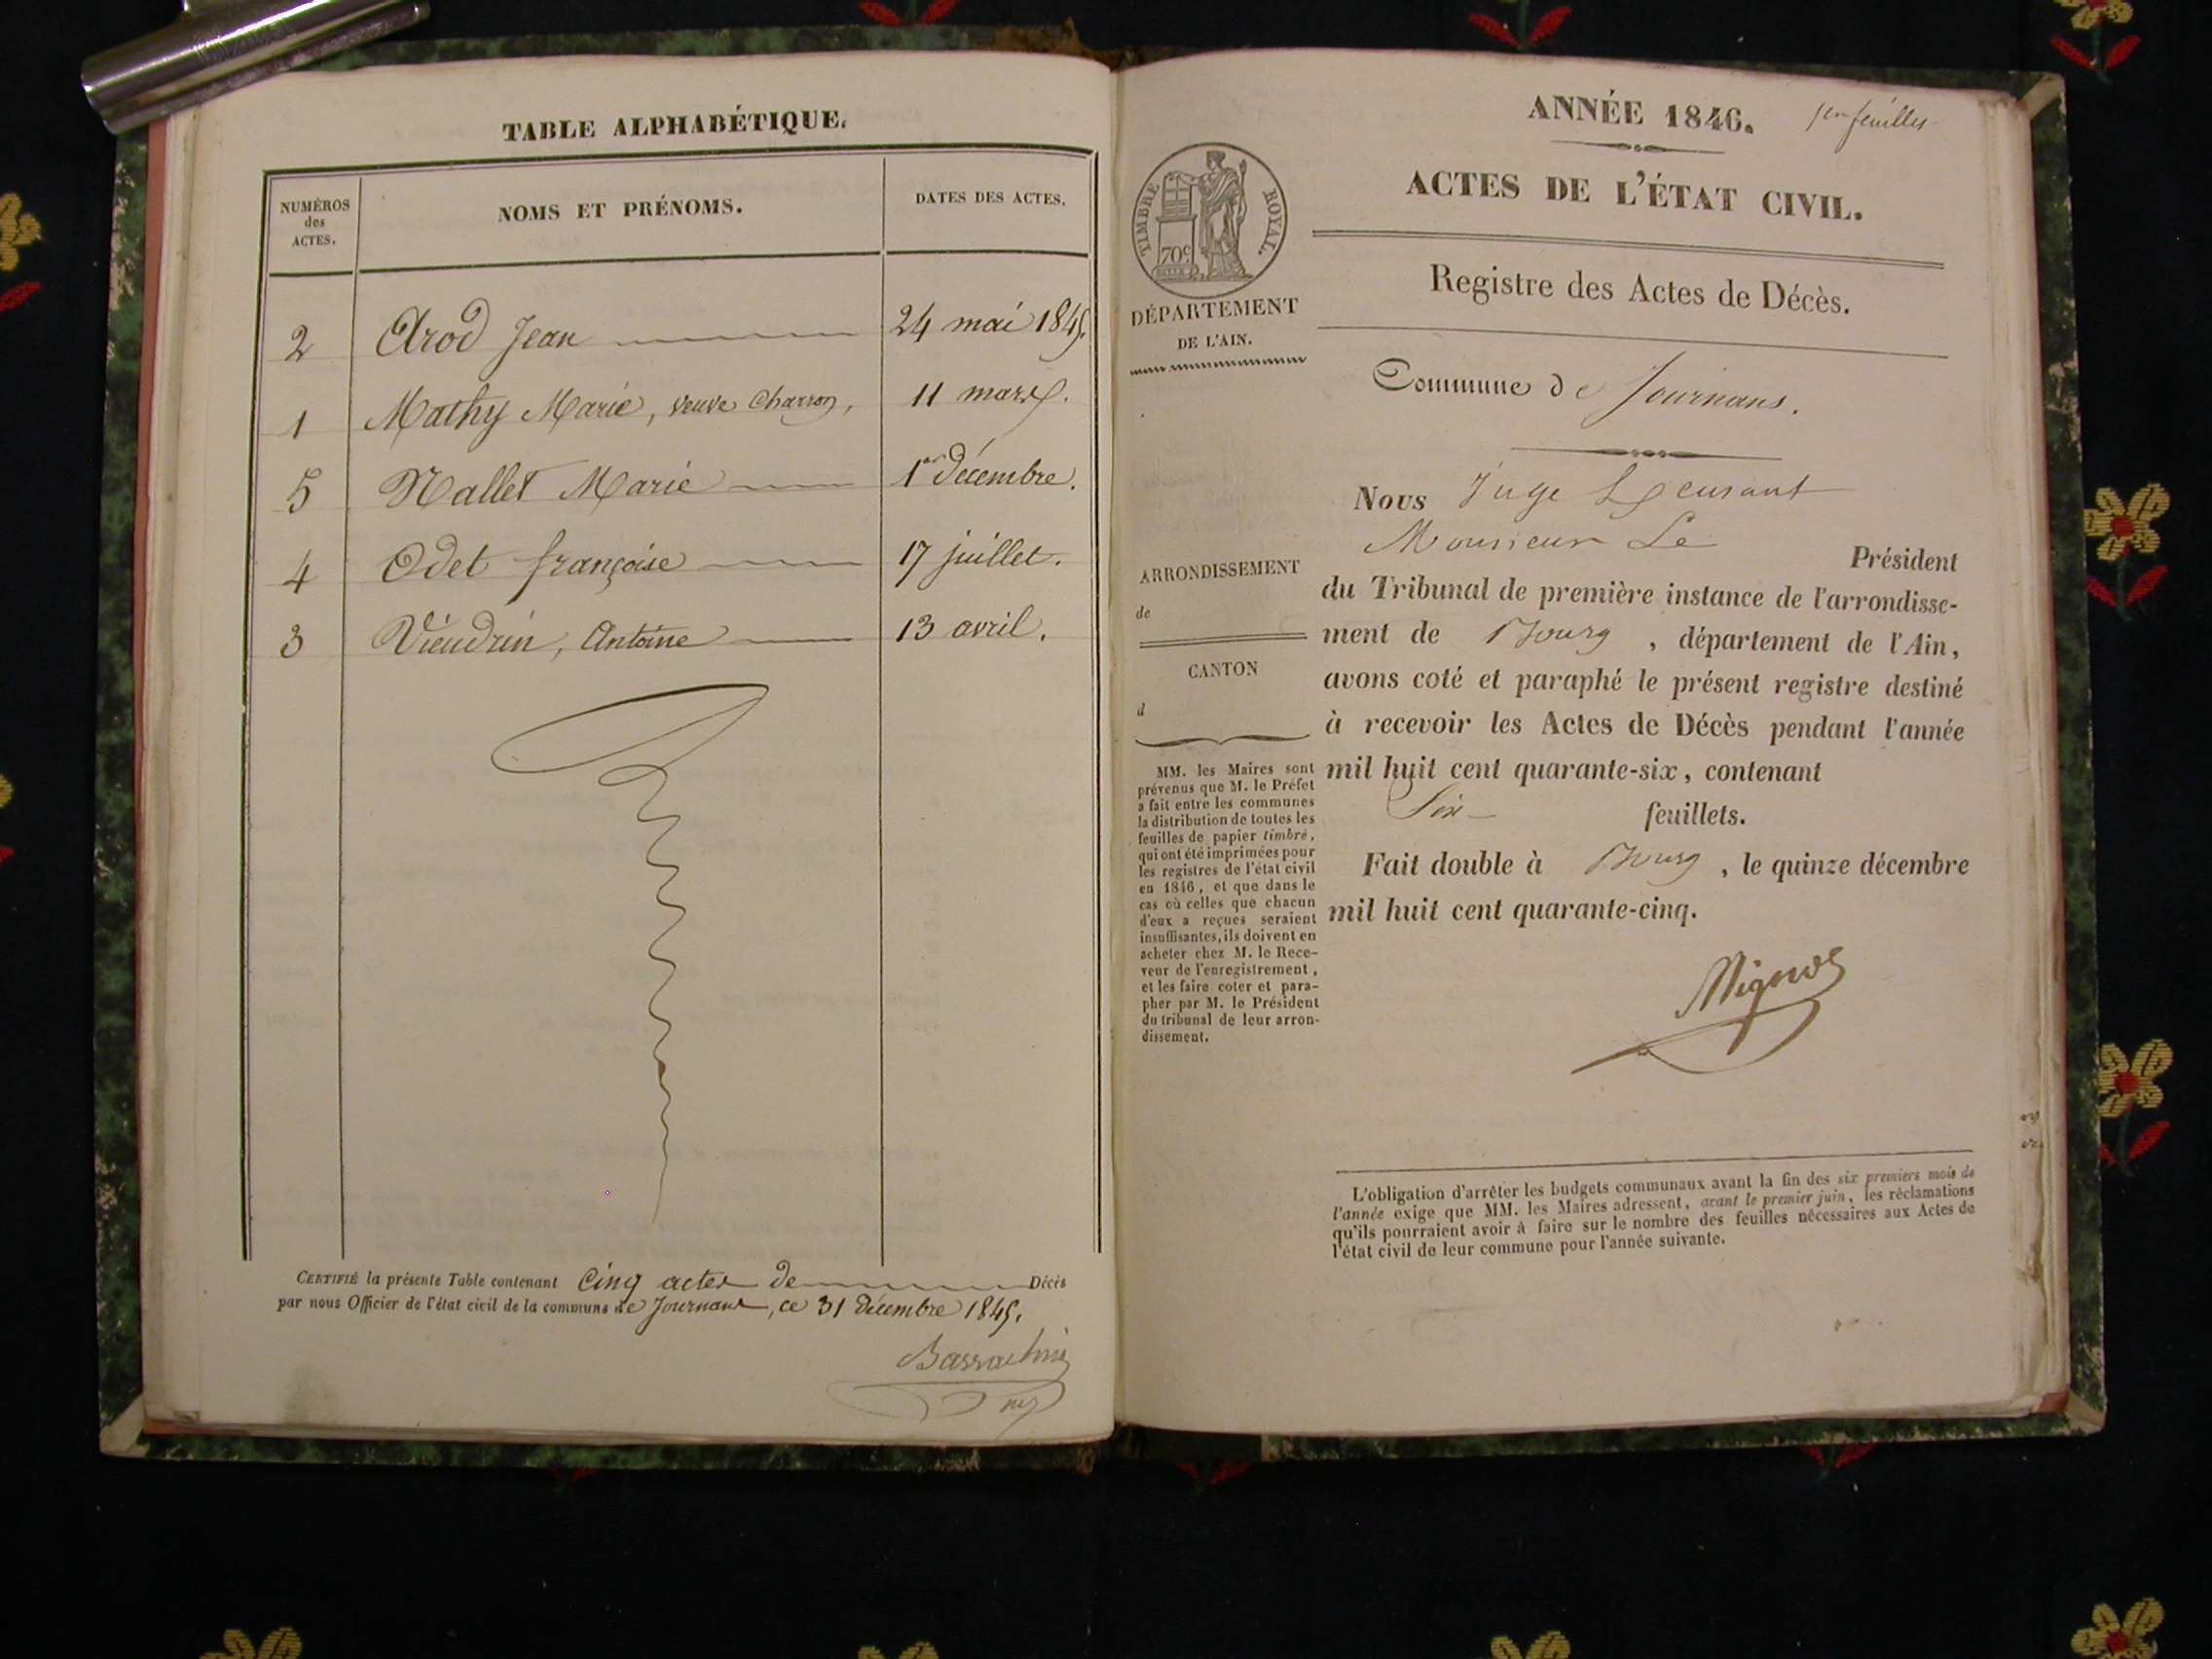 TABLE ALPHABÉTIQUE.
NUMÉROS
des
ACTES.
NOMS ET PRÉNOMS.
DATES DES ACTES.
2 Arod Jean 24 mai 1845.
1 Mathy Marie, veuve Charron, 11 mars.
5 Nallet Marie 1er décembre.
4 Odet françoise 17 juillet.
3 Vieudrin, Antoine 13 avril.
CERTIFIÉ la présente Table contenant Cinq actes de Décès
par nous Officier de l'état civil de la commune de Journans, ce 31 décembre 1845.
ANNÉE 1846. 1er feuillet
ACTES DE L'ÉTAT CIVIL.
TIMBRE ROYAL.
70c
DÉPARTEMENT
DE L'AIN.
Registre des Actes de Décès.
Commune de Journans.
ARRONDISSEMENT
de
CANTON
d
MM. les Maires sont
prévenus que M. le Préfet
a fait entre les communes
la distribution de toutes les
feuilles de papier timbré,
qui ont été imprimées pour
les registres de l'état civil
en 1846, et que dans le
cas où celles que chacun
d'eux a reçues seraient
insuffisantes, ils doivent en
acheter chez M. le Rece-
veur de l'enregistrement,
et les faire coter et para-
pher par M. le Président
du tribunal de leur arron-
dissement.
Nous Juge
Monsieur Le Président
du Tribunal de première instance de l'arrondisse-
ment de Bourg, département de l'Ain,
avons coté et paraphé le présent registre destiné
à recevoir les Actes de Décès pendant l'année
mil huit cent quarante-six, contenant
Six feuillets.
Fait double à Bourg, le quinze décembre
mil huit cent quarante-cinq.
L'obligation d'arrêter les budgets communaux avant la fin des six premiers mois de
l'année exige que MM. les Maires adressent, avant le premier juin, les réclamations
qu'ils pourraient avoir à faire sur le nombre des feuilles nécessaires aux Actes de
l'état civil de leur commune pour l'année suivante.